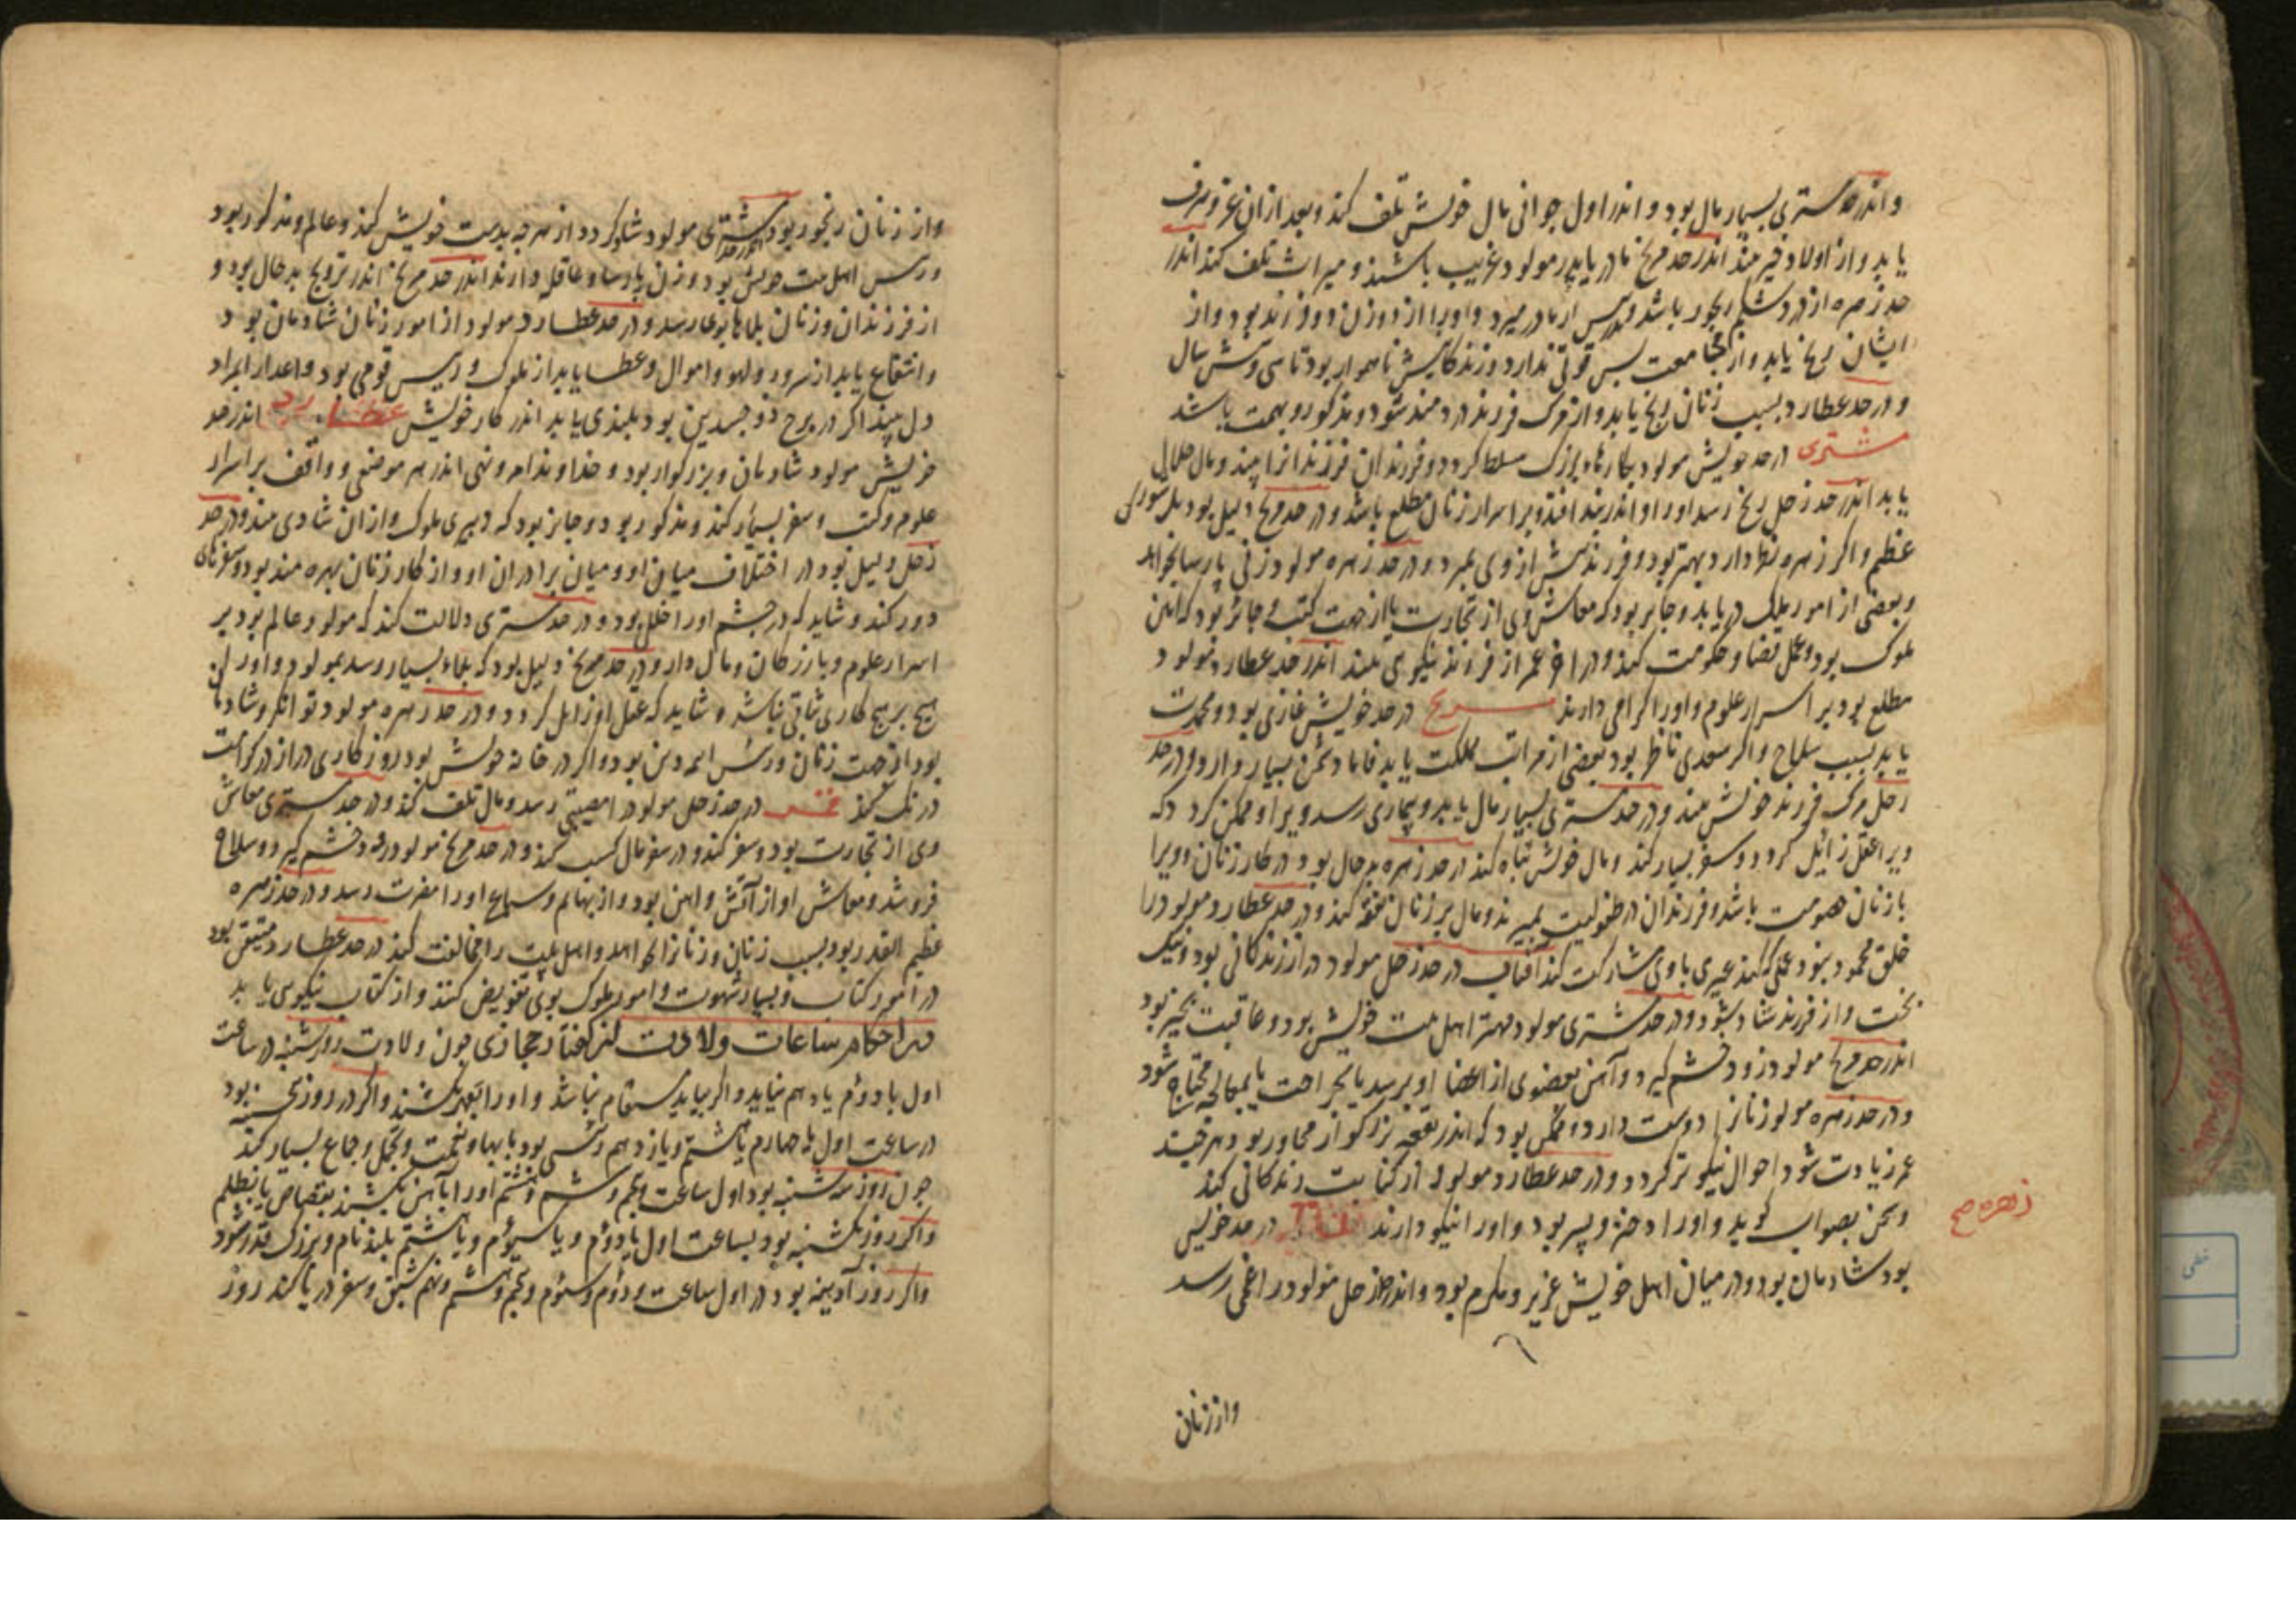 و اندر حد مشتری بسیار مال بود و اندر اول جوانی مال خویش تلف کند و بعد از ان عز و شرف
یابد و از اولاد خیر بیند اندر حد مریخ مادر یا پدر مولود غریب باشند و میراث تلف کند اندر
حد زهره از درد شکم رنجور باشد و پس از مادر میرد و او را از دو زن دو فرزند بود و از
ایشان رنج یابد و از مجامعت بس قوتی ندارد و زندکانیش ناهموار بود تا سی و شش سال
و در حد عطارد بسبب زنان رنج یابد و از مرک فرزند دردمند شود و مذکور و بهمت باشد
مشتری در حد خویش مولود بکارهاء بزرک مسلط کردد و فرزندان فرزندانرا بیند و مال حلال
یابد اندر حد زحل رنج رسد او را و اندر بند افتد و بر اسرار زنان مطلع باشد و در حد مریخ دلیل بود بلشکری
عظیم و اکر زهره نظر دارد بهتر بود و فرزندش از وی بمیرد و در حد زهره مولود زنی پارسا بخواهد
و بعضی از امور ملک دریابد و جایز بود که معاش وی از تجارت یا از جهت کتب و جائز بود که امین
ملوک بود و عمل قضا و حکومت کند و در آخر عمر از فرزند نیکویی بیند اندر حد عطارد مولود
مطلع بود بر اسرار علوم و او را کرامی دارند مریخ در حد خویش غازی بود و محمدت
یابد بسبب سلاح و اکر سعدی ناظر بود بعضی از مراتب مملکت یابد فاما دشمن بسیار دارد و در حد
زحل مرک فرزند خویش بیند و در حد مشتری بسیار مال یابد و بیماری رسد ویرا و ممکن کردد که
ویرا عقل زائل کردد و سفر بسیار کند و مال خویش تباه کند در حد زهره بدحال بود و در کار زنان و ویرا
با زنان خصومت باشد و فرزندان در طفولیت بمیرند و مال بر زنان نفقه کند و در حد عطارد مولود را
خلق محمود بود و عملی که کند غیری با وی مشارکت کند آفتاب در حد زحل مولود دراز زندکانی بود و نیک
بخت و از فرزند شاد شود و در حد مشتری مولود مهتر اهل بیت خویش بود و عاقبت بخیر بود
اندر حد مریخ مولود زود خشم کیرد و آهن بعضوی از اعضا او برسد یا بجراحت یا بمعالجه محتاج شود
و در حد زهره مولود زنانرا دوست دارد و ممکن بود که اندر بقعه بزرکوار مجاور بود و هرچند
عمر زیادت شود احوال نیکوتر کردد و در حد عطارد مولود از کتابت زندکانی کند
و سخن بصواب کوید و او را دختر و پسر بود و او را نیکو دارند در حد خویش
زهره صح
بود شادمان بود و در میان اهل خویش عزیز و مکرم بود و اندر حد زحل مولود را غمی رسد
واز زنان
و از زنان رنجور بود اندر حد مشتری مولود شاد کردد از هرچه بدست خویش کند و عالم و مذکور بود
و رئیس اهل بیت خویش بود و زن پارسا و عاقله دارند اندر حد مریخ اندر تزویج بدحال بود و
از فرزندان و زنان بلاها بوی رسد و در حد عطارد مولود از امور زنان شادمان بود
و انتفاع یابد از سرود و لهو و اموال و عطا یابد از ملوک و رئیس قومی بود و اعدا را بمراد
دل بیند اکر در برج ذو جسدین بود بلندی یابد اندر کار خویش عطارد اندر حد
خویش مولود شادمان و بزرکوار بود و خداوند امر و نهی اندر هر موضعی و واقف بر اسرار
علوم و کتب و سفر بسیار کند و مذکور بود و جایز بود که دبیری ملوک و از ان شادی بیند و در حد
زحل دلیل بود در اختلاف میان او و میان برادران او و از کار زنان بهره مند بود و سفرهای
دور کند و شاید که در چشم او را خلل بود و در حد مشتری دلالت کند که مولود عالم بود بر
اسرار علوم و بازرکان و مال دار و در حد مریخ دلیل بود که بلاء بسیار رسد بمولود و او را
هیچ بر هیچ کاری ثباتی نباشد و شاید که عقل او زایل کردد و در حد زهره مولود توانکر و شادمان
بود از جهت زنان و رئیس ائمه دین بود و اکر در خانه خویش بود روزکاری دراز در کرامت
درنک کند قمر در حد زحل مولود را مصیبتی رسد و مال تلف کند و در حد مشتری معاش
وی از تجارت بود و سفر کند و در سفر مال کسب کند و در حد مریخ مولود زود خشم کیرد و سلاح
فروشد و معاش او از آتش و اهن بود و از بهائم و سباع او را مضرت رسد و در حد زهره
عظیم القدر بود بسبب زنان و زنانرا خواهد و اهل بیت را مخالفت کند در حد عطارد متیقن بود
در امور کتاب و بسیار شهوت و امور ملوک بوی تفویض کنند و از کتاب نیکویی یابد
در احکام ساعات ولادت از کفتار حجازی چون ولادت روز شنبه در ساعت
اول یا دوم یا دهم نیاید و اکر بیاید مستقام نباشد و او را بقهر بکشند و اکر در روز یکشنبه بود
در ساعت اول یا چهارم یا هشتم و یازدهم رئیس بود با بها و نعمت و تجمل و جماع بسیار کند
چون روز سه شنبه بود اول ساعت و پنجم و ششم و هشتم او را بآهن بکشند بقصاص یا بظلم
و اکر روز یکشنبه بود بساعت اول یا دوم و یا سیوم و یا هشتم بلند نام و بزرک قدر شود
و اکر روز آدینه بود در اول ساعت و دوم و سیوم و پنجم و هشتم و نهم شبق و سفر دریا کند روز